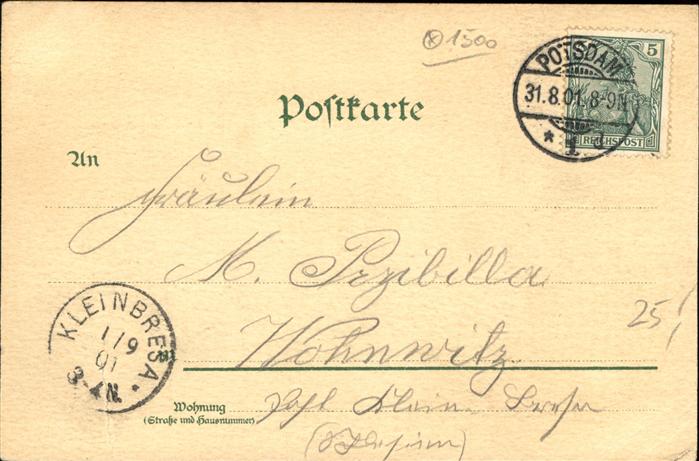 ⓧ 1500
5
POTSDAM
31.8.01.8-9N
* 1
REICHSPOST
Postkarte
An
Fräulein
M. Przibilla
Wohnwitz
25,!
KLEINBRESA *
1/9
01
8-
N.
Wohnung
(Straße und Hausnummer)
Post Klein Bresa
(Schlesien)